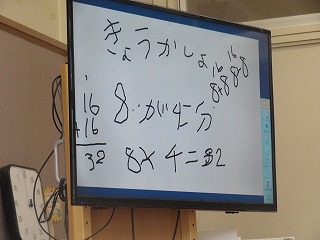 きょうかしょ
16 16
8+8 8+8
8が4こ分
1
16
+16
32
8×4=32